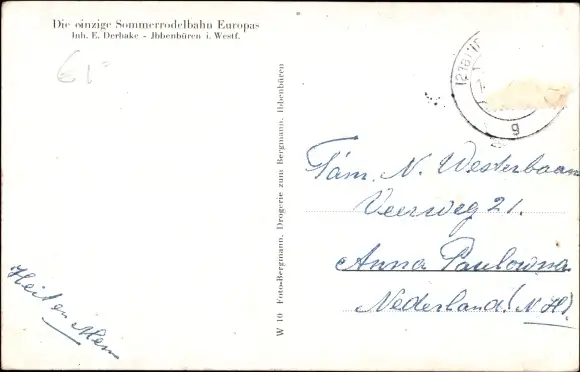 Die einzige Sommerrodelbahn Europas
Inh. E. Derhake - Jbbenbüren i. Westf.
€ 1=
W 10 Foto-Bergmann, Drogerie zum Bergmann, Ibbenbüren
g
Fam. N. Westerbaan
Veerweg 21.
Anna Paulowna
Nederland! N.H.